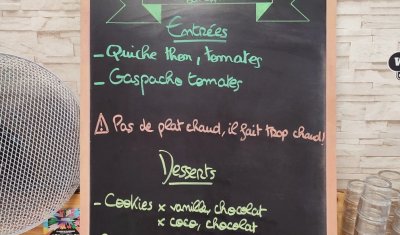 Entrées
- Quiche thon, tomates
- Gaspacho tomates
⚠ Pas de plat chaud, il fait trop chaud!
Desserts
- Cookies x vanille, chocolat
x coco, chocolat